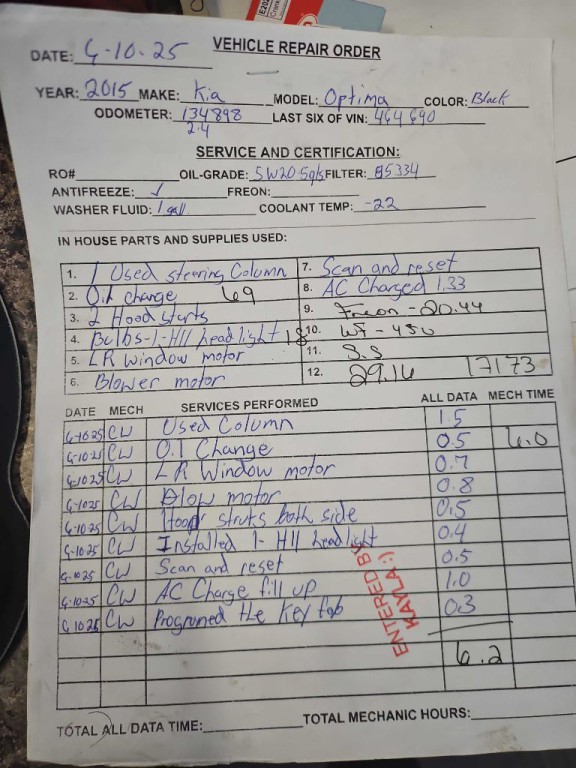 VEHICLE REPAIR ORDER
DATE: 6-10-25
YEAR: 2015 MAKE: Kia MODEL: Optima COLOR: Black
ODOMETER: 134898 LAST SIX OF VIN: 464690
2.4
SERVICE AND CERTIFICATION:
RO# OIL-GRADE: 5W20 5qts FILTER: 85334
ANTIFREEZE: ✓ FREON:
WASHER FLUID: 1 gall COOLANT TEMP: -22
IN HOUSE PARTS AND SUPPLIES USED:
1. 1 Used steering Column
2. Oil change 69
3. 2 Hood sturts
4. Bulbs-1-H11 headlight 18
5. LR window motor
6. Blower motor
7. Scan and reset
8. AC Charged 1.33
9. Freon - 20.44
10. WF - 450
11. S.S
12. 29.16 171 73
DATE MECH SERVICES PERFORMED ALL DATA MECH TIME
6-10-25 CW Used Column 1.5
6-10-25 CW Oil Change 0.5 6.0
6-10-25 CW LR Window motor 0.7
6-10-25 CW Blow motor 0.8
6-10-25 CW Hood struts both side 0.5
6-10-25 CW Installed 1- H11 headlight 0.4
6-10-25 CW Scan and reset 0.5
6-10-25 CW AC Charge fill up 1.0
6-10-25 CW Programed the key fob 0.3
ENTERED BY
KAYLA :)
6.2
TOTAL ALL DATA TIME: TOTAL MECHANIC HOURS: